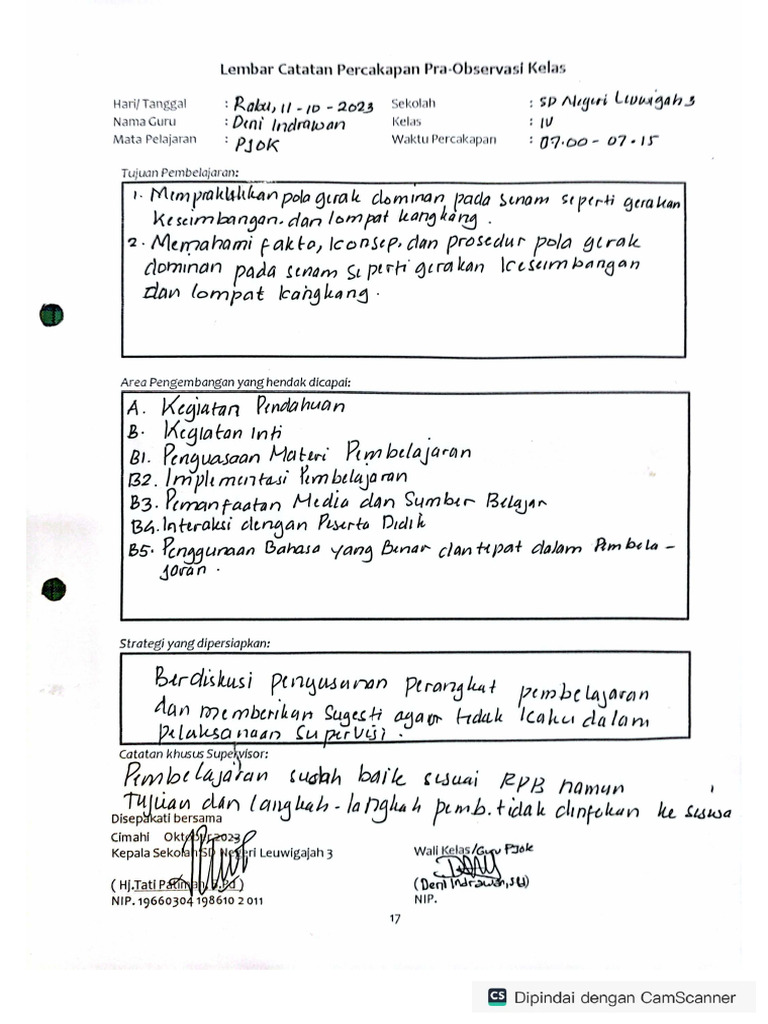 Lembar Catatan Percakapan Pra-Observasi Kelas
Hari/ Tanggal : Rabu, 11-10-2023 Sekolah : SD Negeri Leuwigah 3
Nama Guru : Deni Indrawan Kelas : IV
Mata Pelajaran : PJOK Waktu Percakapan : 07.00 - 07.15
Tujuan Pembelajaran:
1. Mempraktikkan pola gerak dominan pada senam seperti gerakan
Keseimbangan. dan lompat kangkang.
2. Memahami fakta, konsep, dan prosedur pola gerak
dominan pada senam seperti gerakan keseimbangan
dan lompat kangkang.
Area Pengembangan yang hendak dicapai:
A. Kegiatan Pendahuan
B. Kegiatan Inti
B1. Penguasaan Materi Pembelajaran
B2. Implementasi Pembelajaran
B3. Pemanfaatan Media dan Sumber Belajar
B4. Interaksi dengan Peserta Didik
B5. Penggunaan Bahasa yang Benar dan tepat dalam Pembela -
jaran.
Strategi yang dipersiapkan:
Berdiskusi penyusunan perangkat pembelajaran
dan memberikan sugesti agar tidak kaku dalam
pelaksanaan supervisi.
Catatan khusus Supervisor:
Pembelajaran sudah baik sesuai RPB namun
Tujuan dan langkah-langkah pemb. tidak ke siswa
Disepakati bersama
Cimahi Oktober 2023
Kepala Sekolah SD Negeri Leuwigajah 3 Wali Kelas/Guru PJok
( Hj.Tati Patimah, S.Pd ) (Deni Indrawan, )
NIP. 19660304 198610 2 011 NIP.
17
CS Dipindai dengan CamScanner